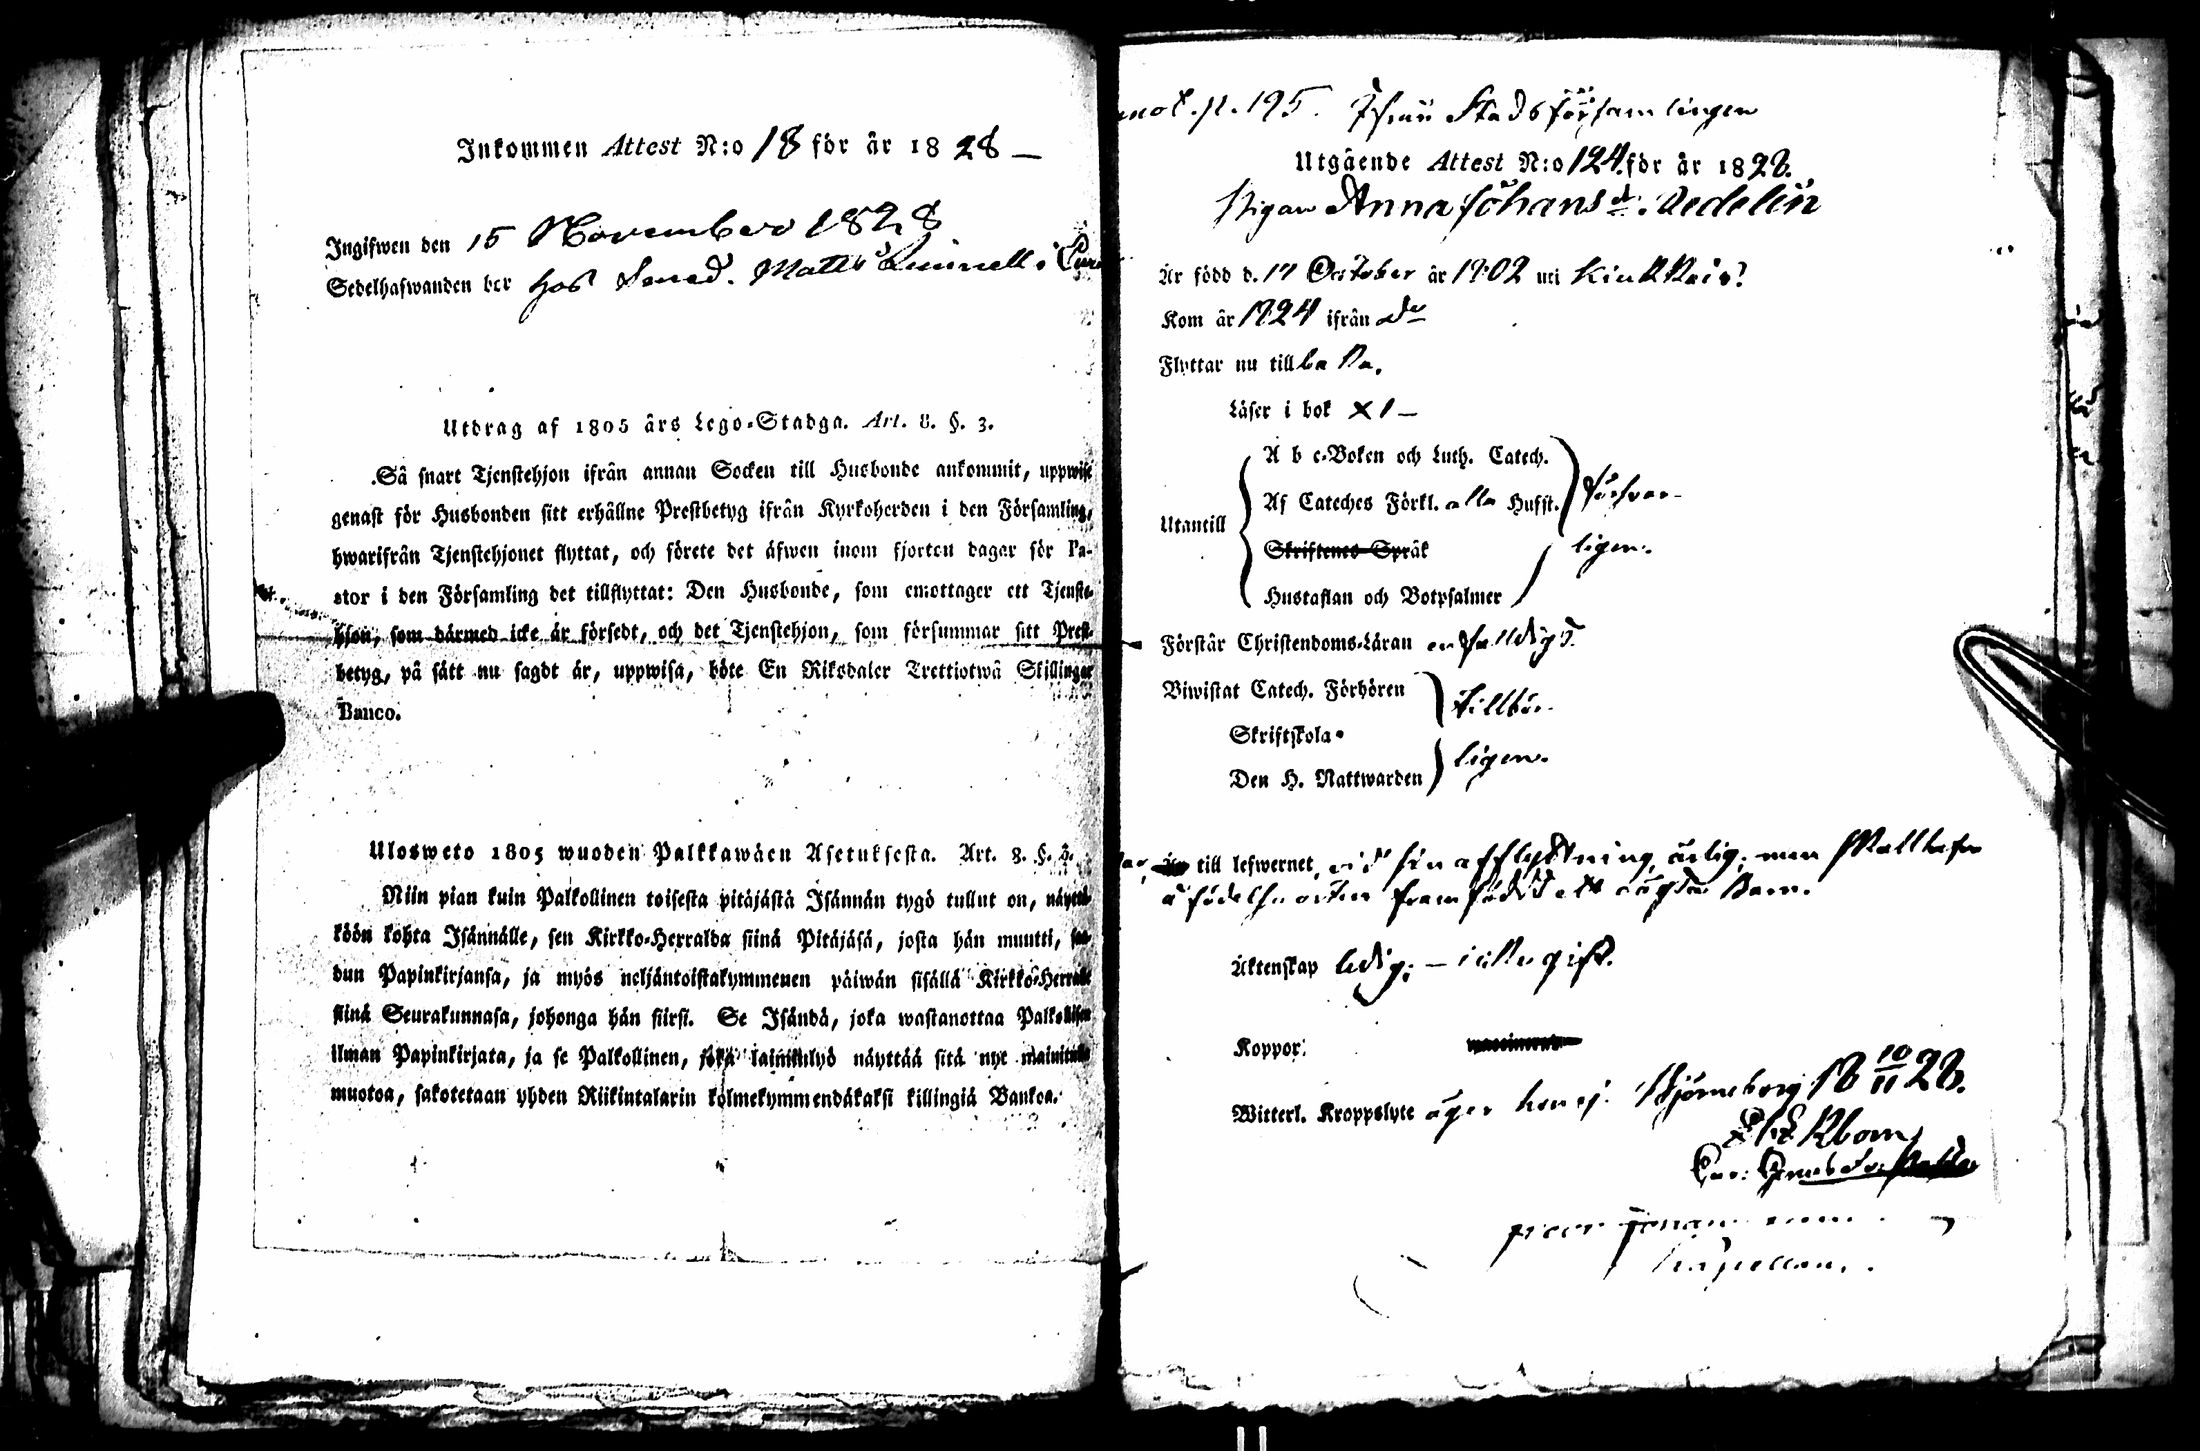 Inkommen Attest N:o 18 för år 1828 —
Ingifwen den 15 November 1828
Sedelhafwanden bor hos Smed. Matts
Utdrag af 1805 års Lego-Stadga. Art. 8. §. 3.
Så snart Tjenstehjon ifrån annan Socken till Husbonde ankommit, uppwise
genast för Husbonden sitt erhållne Prestbetyg ifrån Kyrkoherden i den Församling,
hwarifrån Tjenstehjonet flyttat, och förete det äfwen inom fjorton dagar för Pa-
stor i den Församling det tillflyttat: Den Husbonde, som emottager ett Tjenste-
hjon, som därmed icke är försedt, och det Tjenstehjon, som försummar sitt Prest-
betyg, på sätt nu sagdt är, uppwisa, böte En Riksdaler Trettiotwå Skillingar
Banco.
Ulosweto 1805 wuoden Palkkawäen Asetuksesta. Art. 8. §. 3.
Niin pian kuin Palkollinen toisesta pitäjästä Isännän tygö tullut on, näyttä-
köön kohta Isännälle, sen Kirkko-Herralda siinä Pitäjäsä, josta hän muutti, saa-
dun Papinkirjansa, ja myös neljäntoistakymmenen päiwän sisällä Kirkko-Herralle
siinä Seurakunnasa, johonga hän siirsi. Se Isändä, joka wastanottaa Palkollisen
ilman Papinkirjata, ja se Palkollinen, joka laiminlyö näyttää sitä nyt mainitulla
muotoa, sakotetaan yhden Riikintalarin kolmekymmendäkaksi killingiä Bankoa.
mot. p. 195. Ifrån Stadsförsamlingen
Utgående Attest N:o 124 för år 1828.
Pigan Anna Johansdr.
Är född d. 17 October år 1802 uti
Kom år 1824 ifrån do
Flyttar nu tillbaka.
Läser i bok X1 —
Utantill
A b c-Boken och Luth. Catech.
Af Cateches Förkl. alla Hufst. försvar-
Skriftenes Språk ligen.
Hustaflan och Botpsalmer
Förstår Christendoms-Läran enfalldigt.
Biwistat Catech. Förhören tillbör-
Skriftskola
Den H. Nattwarden ligen.
till lefwernet, vid sin afflyttning ärlig; men
å födelseorten framfödt ett oägta barn.
Äktenskap ledig; — icke gift.
Koppor:
Witterl. Kroppslyte äger hon ej. Björneborg 18 10/11 28.